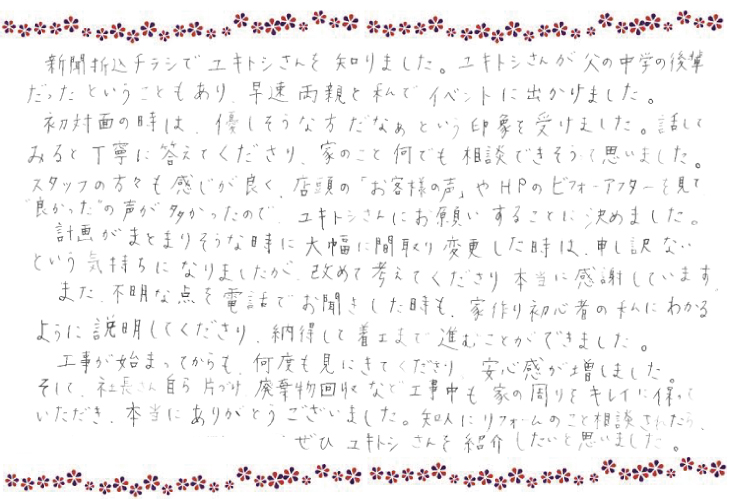 新聞折込チラシでユキトシさんを知りました。ユキトシさんが父の中学の後輩
だったということもあり、早速両親と私でイベントに出かけました。
初対面の時は、優しそうな方だなぁという印象を受けました。話して
みると丁寧に答えてくださり、家のこと何でも相談できそうって思いました。
スタッフの方々も感じが良く、店頭の「お客様の声」やHPのビフォーアフターを見て
"良かった"の声が多かったので、ユキトシさんにお願いすることに決めました。
計画がまとまりそうな時に大幅に間取り変更した時は、申し訳ない
という気持ちになりましたが、改めて考えてくださり本当に感謝しています。
また、不明な点を電話でお聞きした時も、家作り初心者の私にわかる
ように説明してくださり、納得して着工まで進むことができました。
工事が始まってからも、何度も見にきてくださり、安心感が増しました。
そして、社長さん自ら片づけ、廃棄物回収など工事中も家の周りをキレイに保って
いただき、本当にありがとうございました。知人にリフォームのこと相談されたら、
ぜひユキトシさんを紹介したいと思いました。